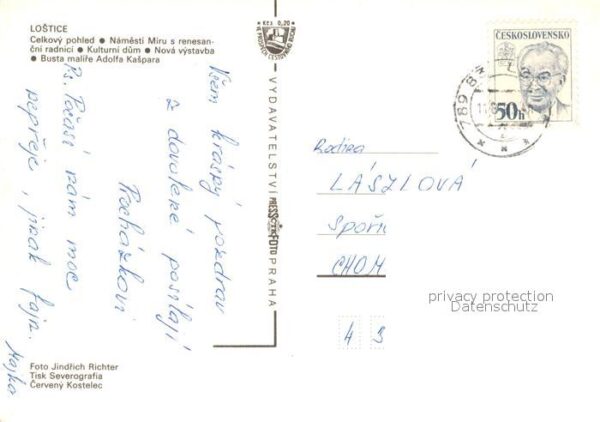 LOŠTICE
Celkový pohled ● Náměstí Míru s renesan-
ční radnicí ● Kulturní dům ● Nová výstavba
● Busta malíře Adolfa Kašpara
Kčs 0,20
VYDAVATELSTVÍ PRESSFOTO PRAHA
ČESKOSLOVENSKO
50h
789 83
Všem krásný pozdrav
z dovolené posílají
Procházkovi
Ps. Počasí nám moc
nepřeje, jinak fajn.
Majka
Rodina
LÁSZLOVÁ
Spořic
CHOM
privacy protection
Datenschutz
43
Foto Jindřich Richter
Tisk Severografia
Červený Kostelec